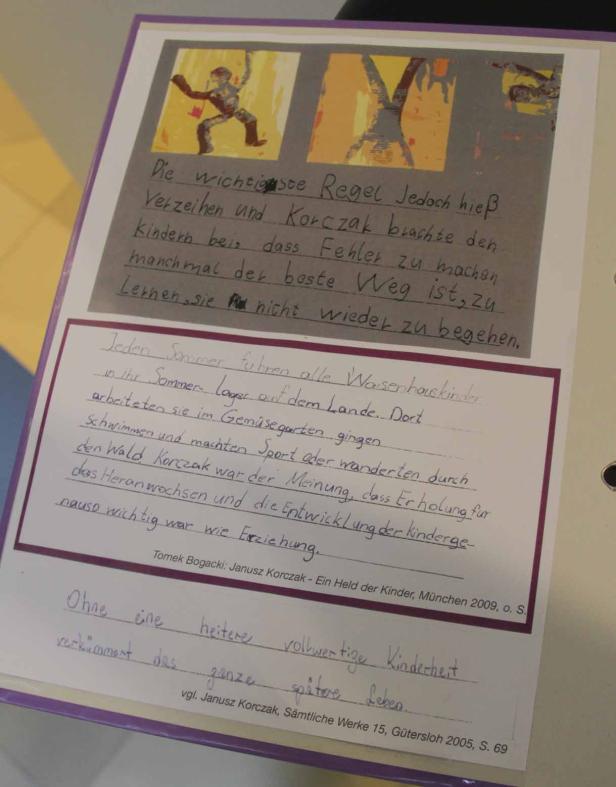 Die wichtigste Regel Jedoch hieß
Verzeihen und Korczak brachte den
Kindern bei, dass Fehler zu machen
manchmal der beste Weg ist, zu
Lernen, sie nicht wieder zu begehen.
Jeden Sommer fuhren alle Waisenhauskinder
in ihr Sommer lager auf dem Lande. Dort
arbeiteten sie im Gemüsegarten gingen
schwimmen und machten Sport oder wanderten durch
den Wald Korczak war der Meinung, dass Erholung für
das Heranwachsen und die Entwicklung der kinderge-
nauso wichtig war wie Erziehung.
Tomek Bogacki: Janusz Korczak - Ein Held der Kinder, München 2009, o. S.
Ohne eine heitere vollwertige Kinderheit
verkümmert das ganze spätere Leben.
vgl. Janusz Korczak, Sämtliche Werke 15, Gütersloh 2005, S. 69